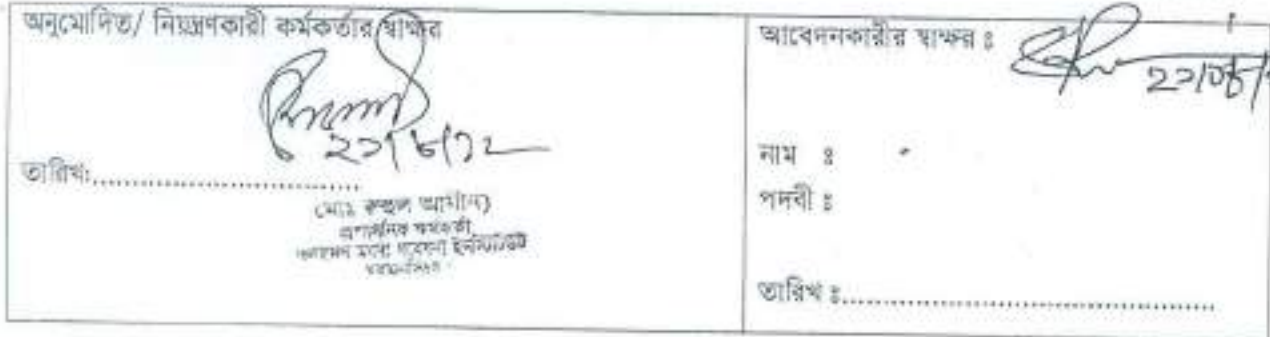 অনুমোদিত/ নিয়ন্ত্রণকারী কর্মকর্তার স্বাক্ষর
২১/৮/১২
তারিখ:................................
(মোঃ রুহুল আমীন)
প্রশাসনিক কর্মকর্তা
আবেদনকারীর স্বাক্ষর ঃ
২১/০৮/
নাম ঃ
পদবী ঃ
তারিখ ঃ............................................